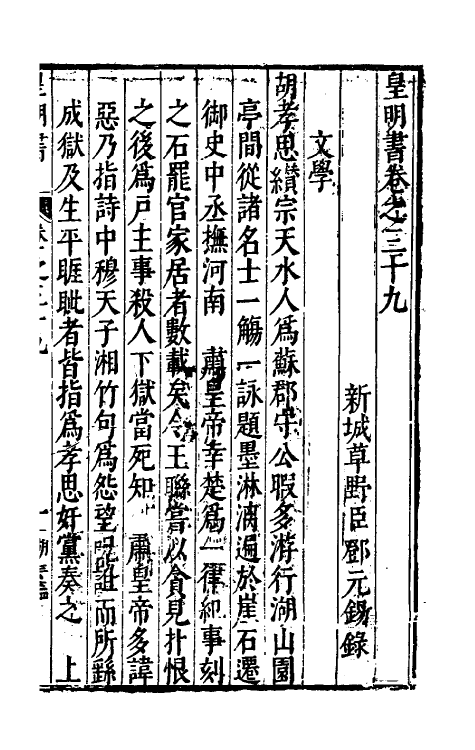 皇明書卷之三十九
新城草野臣鄧元錫錄
文學
胡孝思纘宗天水人為蘇郡守公暇多游行湖山園
亭間從諸名士一觴一詠題墨淋漓遍於崖石遷
御史中丞撫河南 肅皇帝幸楚為一律紀事刻
之石罷官家居者數載矣令王聯嘗以貪見扑恨
之後為戶主事殺人下獄當死知 肅皇帝多諱
惡乃指詩中穆天子湘竹句為怨望呪詛而所繇
成獄及生平睚眦者皆指為孝思奸黨奏之 上
皇明書 卷之三十九 一